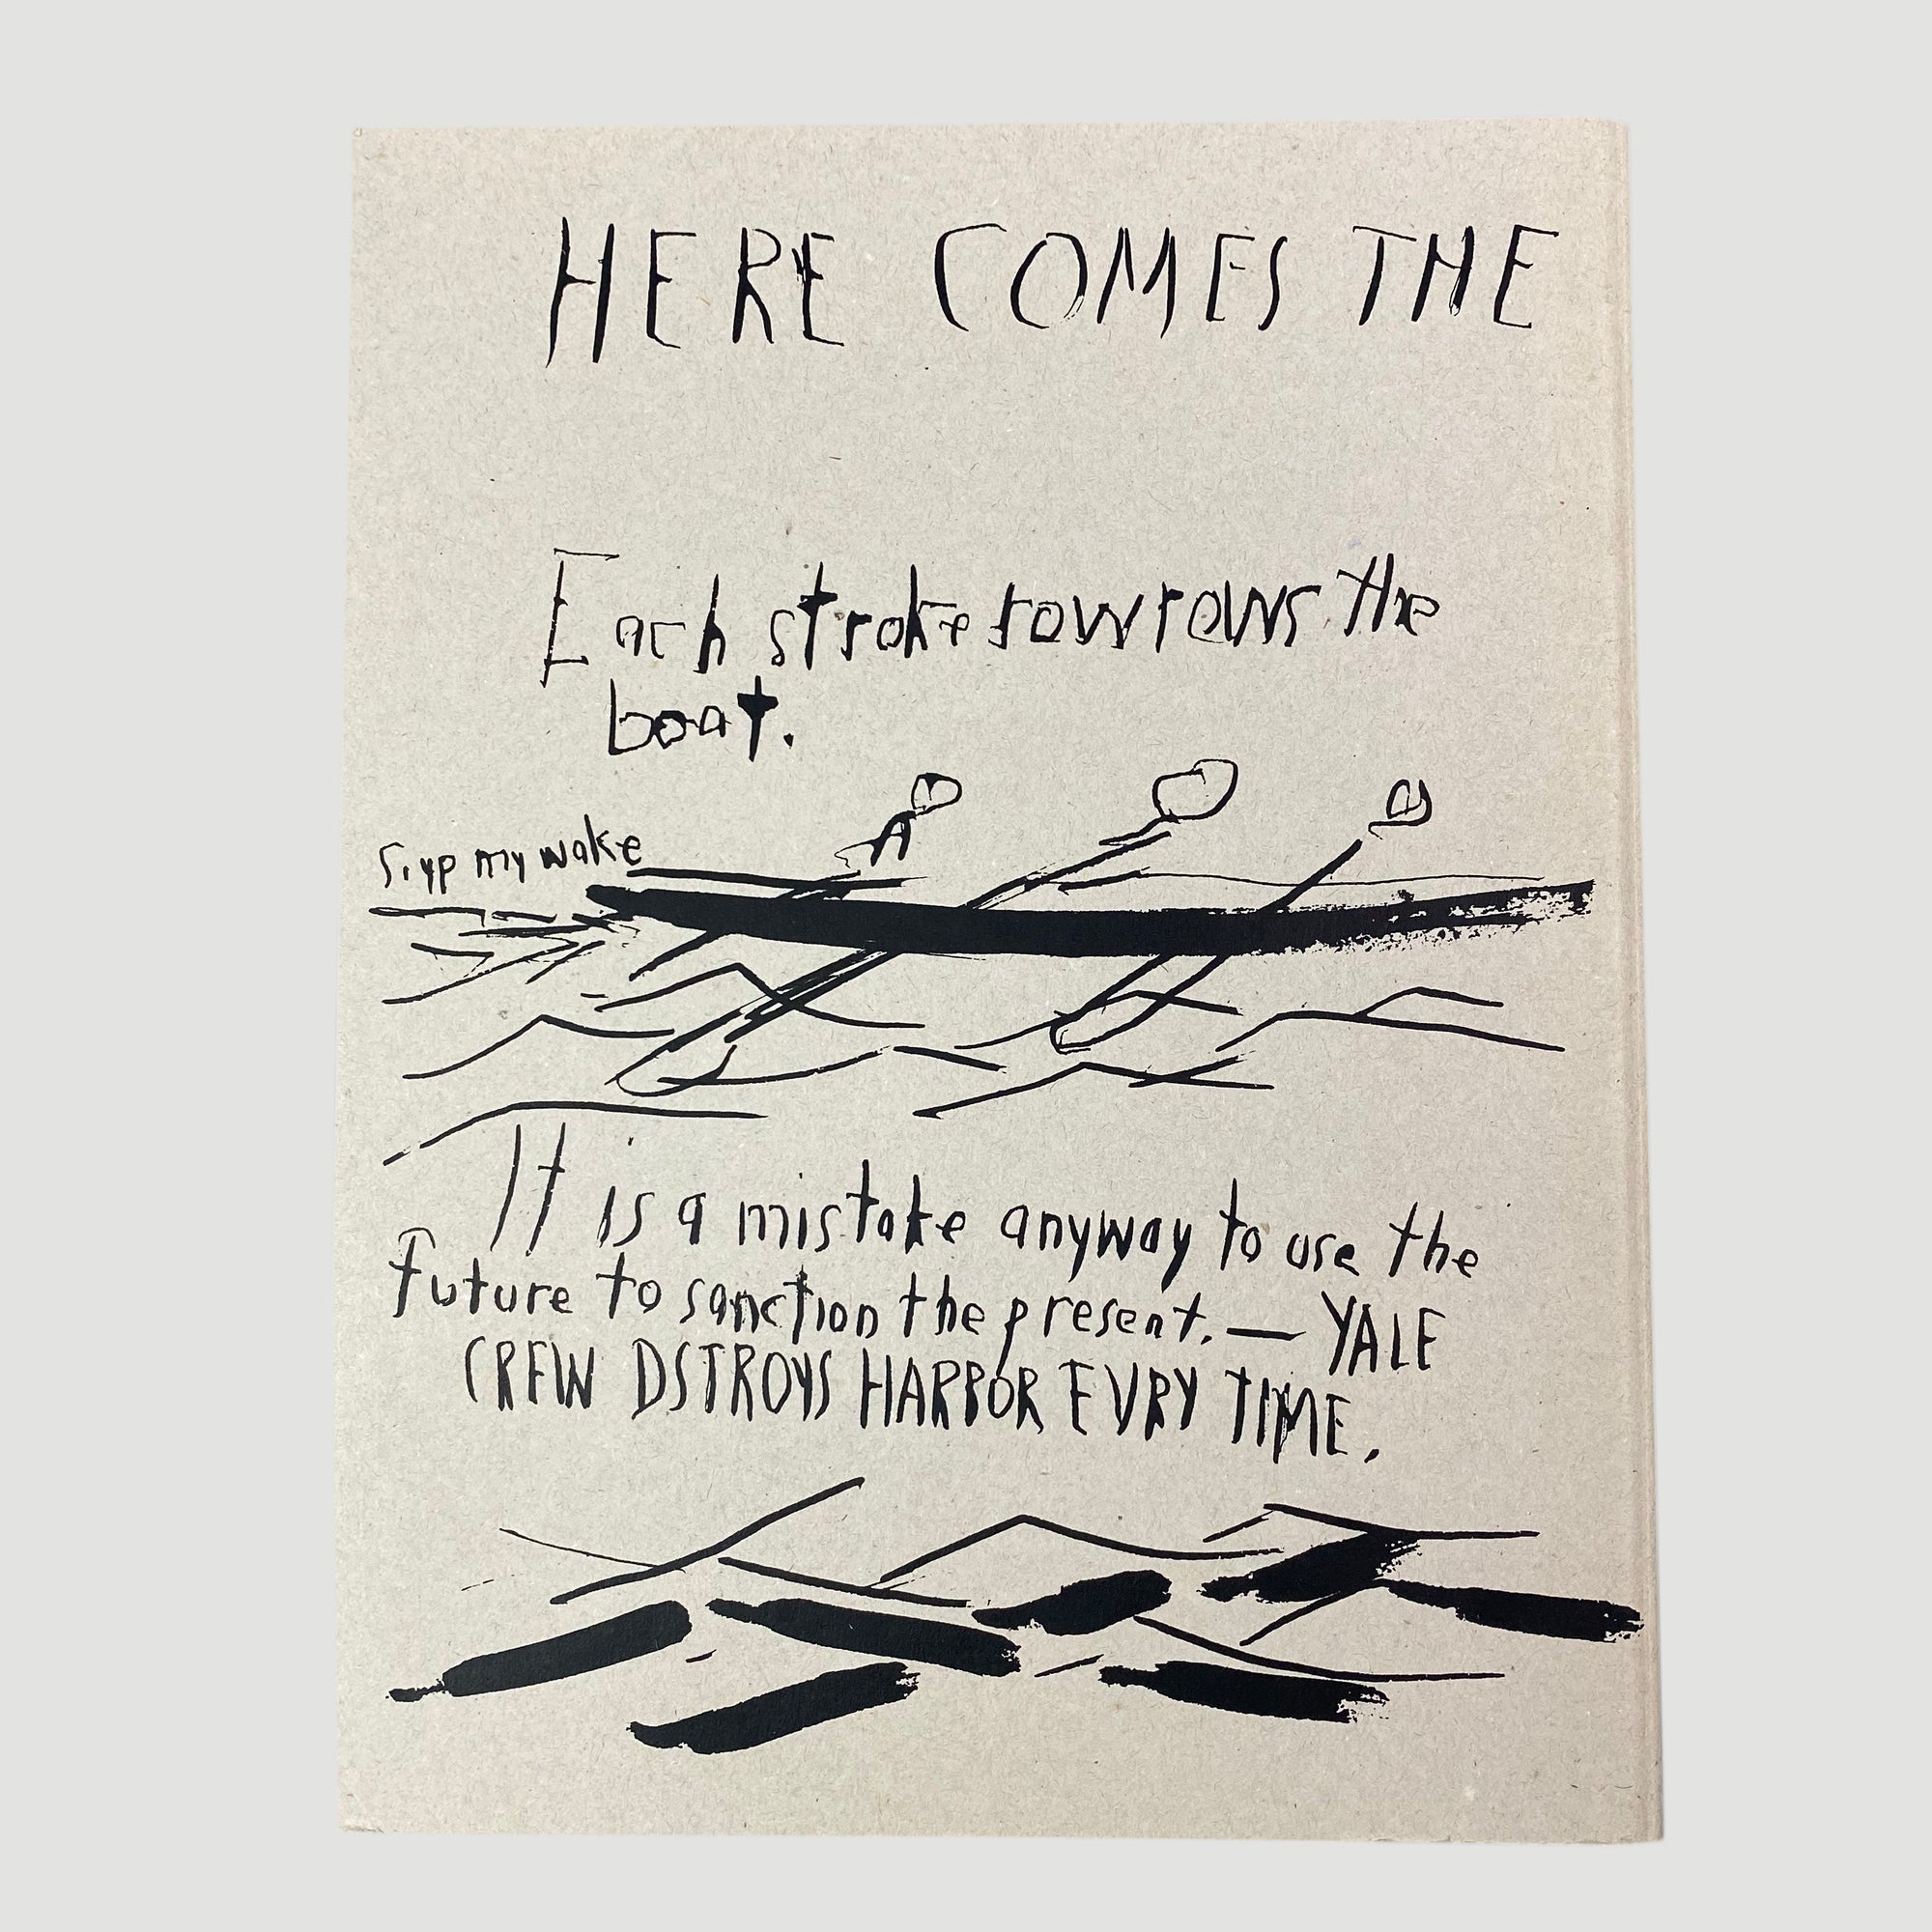 HERE COMES THE
Each stroke row rows the
boat.
my wake
It is a mistake anyway to use the
future to sanction the present. — YALE
CREW DSTROYS HARBOR EVRY TIME.